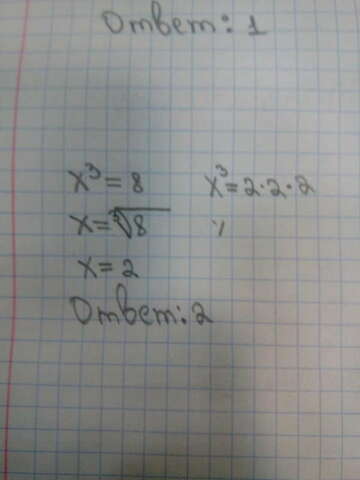 Ответ: 1
x³ = 8
x = ∛8
x = 2
Ответ: 2
x³ = 2·2·2